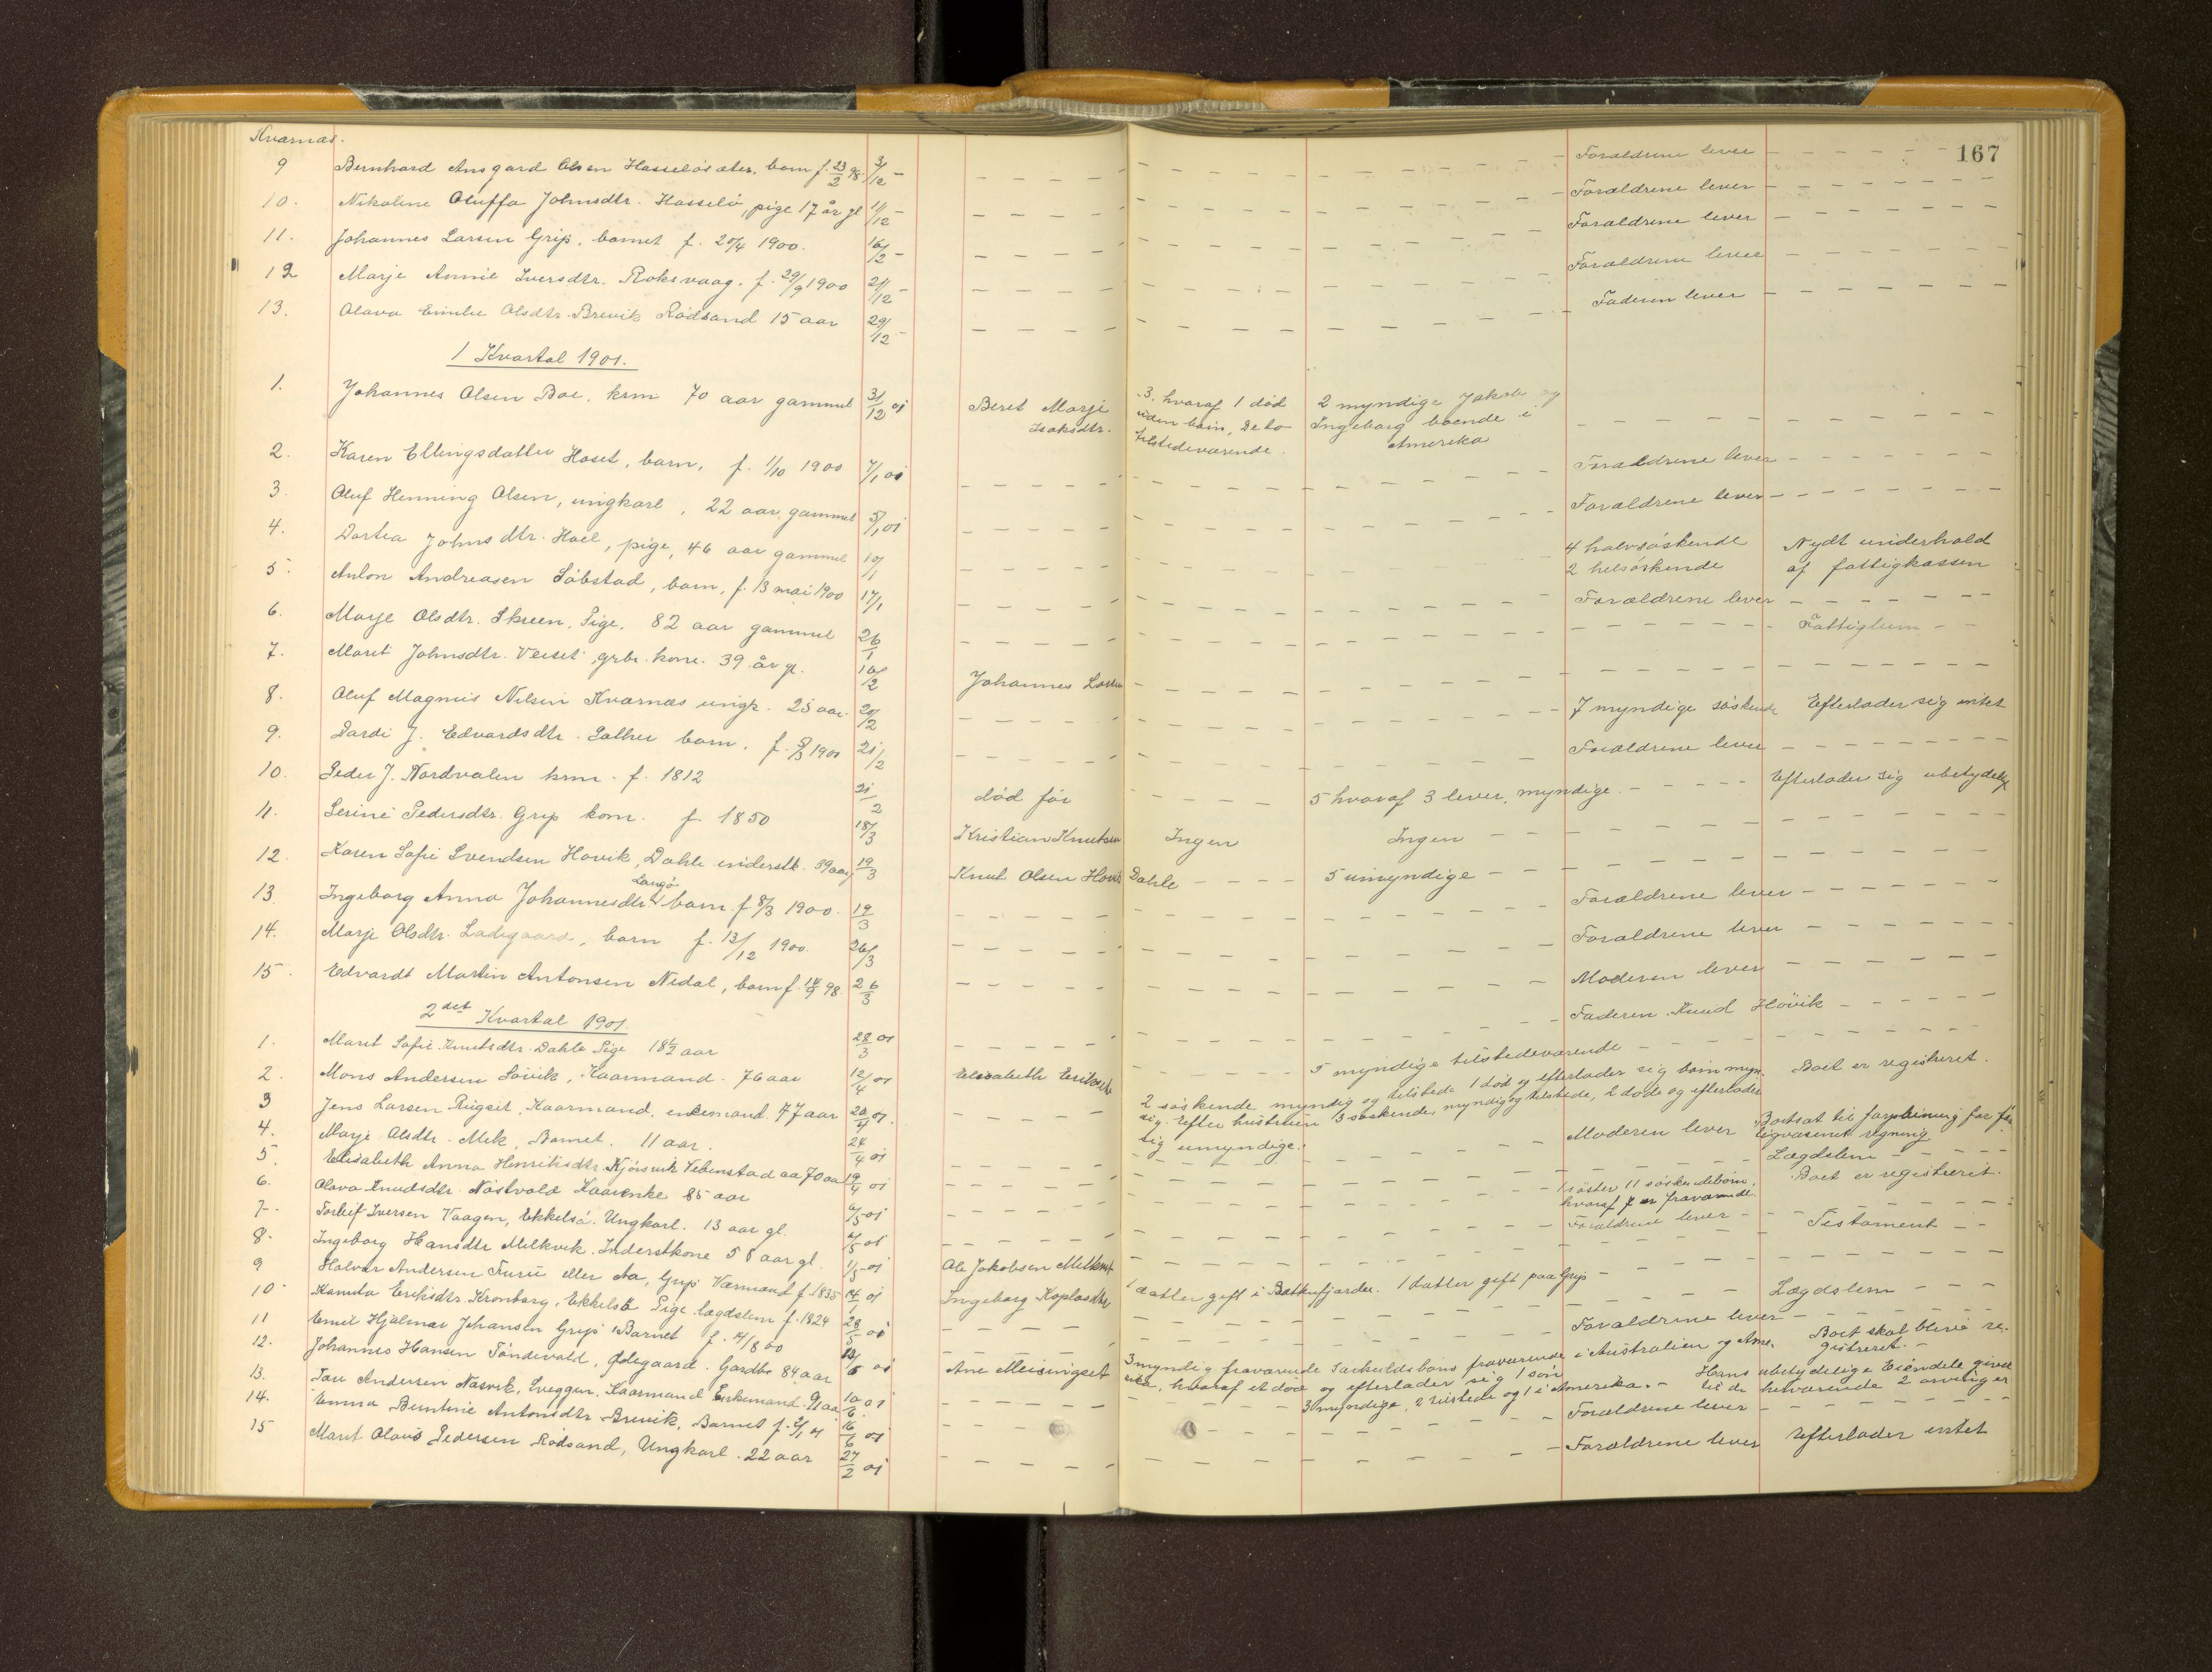 167
Kvarnæs.
9 Bernhard Ansgard Olsen Hasseløsæter, barn f. 23/2 98 3/12 - Forældrene lever
10. Nikoline Oluffa Johnsdtr. Hasselø, pige 17 år gl 11/12 - Forældrene lever
11. Johannes Larsen Grip, barnet f. 20/4 1900. 16/12 - Forældrene lever
12 Marje Annie Iversdtr. Roksvaag. f. 29/9 1900 21/12 - Forældrene lever
13. Olava Emilie Olsdtr. Brevik Rødsand 15 aar 29/12 - Faderen lever
1 Kvartal 1901.
1. Johannes Olsen Boe, krm 70 aar gammel 31/12 01 Beret Marje Isaksdtr. 3. hvoraf 1 død uden barn, De to tilstedeværende. 2 myndige Jakob og Ingeborg boende i Amerika
2. Karen Ellingsdatter Hoset, barn, f. 1/10 1900 7/1 01 Forældrene lever
3. Oluf Henning Olsen, ungkarl, 22 aar gammel 5/1 01 Forældrene lever
4. Dortea Johnsdtr. Hoel, pige, 46 aar gammel 10/1 4 halvsøskende 2 helsøskende Nydt underhold af fattigkassen
5. Anton Andreasen Søbstad, barn, f. 13 mai 1900 17/1 Forældrene lever
6. Marje Olsdtr. Skreen. Pige. 82 aar gammel 26/1 Fattiglem
7. Marit Johnsdtr. Veiset, grbr. kone. 39 år gl. 16/2 Johannes Larsen
8. Oluf Magnus Nilsen Kvarnæs ungk. 25 aar 20/2 7 myndige søskende Efterlader sig intet
9. Dardi J. Edvardsdtr. Sather barn. f. 1900 21/2 Forældrene lever
10. Peder J. Nordvalen krm. f. 1812 21/2 død før 5 hvoraf 3 lever, myndige. Efterlader sig ubetydelig
11. Serine Pedersdtr. Grip kone. f 1850 18/3 Kristian Knutsen Ingen Ingen
12. Karen Sofie Svendsen Hovik, Dahle inderstk. 39 aar 19/3 Knut Olsen Hovik Dahle 5 umyndige
13. Ingeborg Anna Johannesdtr. Langø barn f 8/3 1900. 19/3 Forældrene lever
14. Marje Olsdtr. Ladegaard, barn f. 13/12 1900. 26/3 Forældrene lever
15. Edvardt Martin Antonsen Nedal, barn f. 14/9 98. 26/3 Moderen lever
2det Kvartal 1901.
1. Marit Sofie Knutsdtr. Dahle Pige 18½ aar 28/3 01 Faderen Knud Høvik
2. Mons Andersen Løvik, Kaarmand. 76 aar 12/4 01 Elisabeth 5 myndige tilstedeværende Boet er registreret.
3 Jens Larsen Rugset, Kaarmand, enkemand 77 aar 20/4 01. 2 søskende myndig og tilstede 1 død og efterlader sig barn myn- dig. Efter hustruen 3 søskende, myndig og tilstede, 2 døde og efterlader sig umyndige.
4. Marje Olsdtr. Mek, Barnet. 11 aar. 24/4 01 Moderen lever Bortsat til forpleining for fat- tigvæsenets regning
5. Elisabeth Anna Henriksdtr. Kjørsvik Vebenstad aa 70 aar 19/4 01 Lægdslem
6. Olava Knudsdtr. Nøstvold Kaarenke 85 aar 01 1 søster 11 søskendebørn, hvoraf 7 er fraværende. Boet er registreret.
7. Torleif Iversen Vaagen, Ekkelsø. Ungkarl. 13 aar gl. 01 Forældrene lever
8. Ingeborg Hansdtr Melkvik. Inderstkone 58 aar gl. 1/5 01 Ole Jakobsen Melkvik Testament
9 Halvor Andersen Furu eller Aa, GripVærmand f. 1835 14/1 01 Ingeborg 1 datter gift i Battenfjorden. 1 datter gift paa Grip
10 Kamila Eriksdtr. Kronborg, Ekkelsø Pige lægdslem f. 1824 28/5 01 Lægdslem
11 Emil Hjalmar Johansen Grip Barnet f. 14/8 00 01 Forældrene lever
12. Johannes Hansen Tøndevold, Ødegaard. Gardbr 84 aar 01 Ane Meisingset 3 myndig fraværende særkuldsbørn fraværende i Australien og Ame- rika, hvoraf et død og efterlader sig 1 søn Boet skal blive re- gistreret.
13. Tore Andersen Nasvik, Sveggen. Kaarmand Enkemand 91 aar 10/6 01 3 myndige, 2 tilstede og 1 i Amerika. Hans ubetydelige Eiendele givet til de herværende 2 arvinger
14. Emma Berntine Antonsdtr. Brevik, Barnet f. 01 16/6 01 Forældrene lever
15 Marit Olava Pedersen Rødsand, Ungkarl. 22 aar 27/2 01 Forældrene lever Efterlader intet